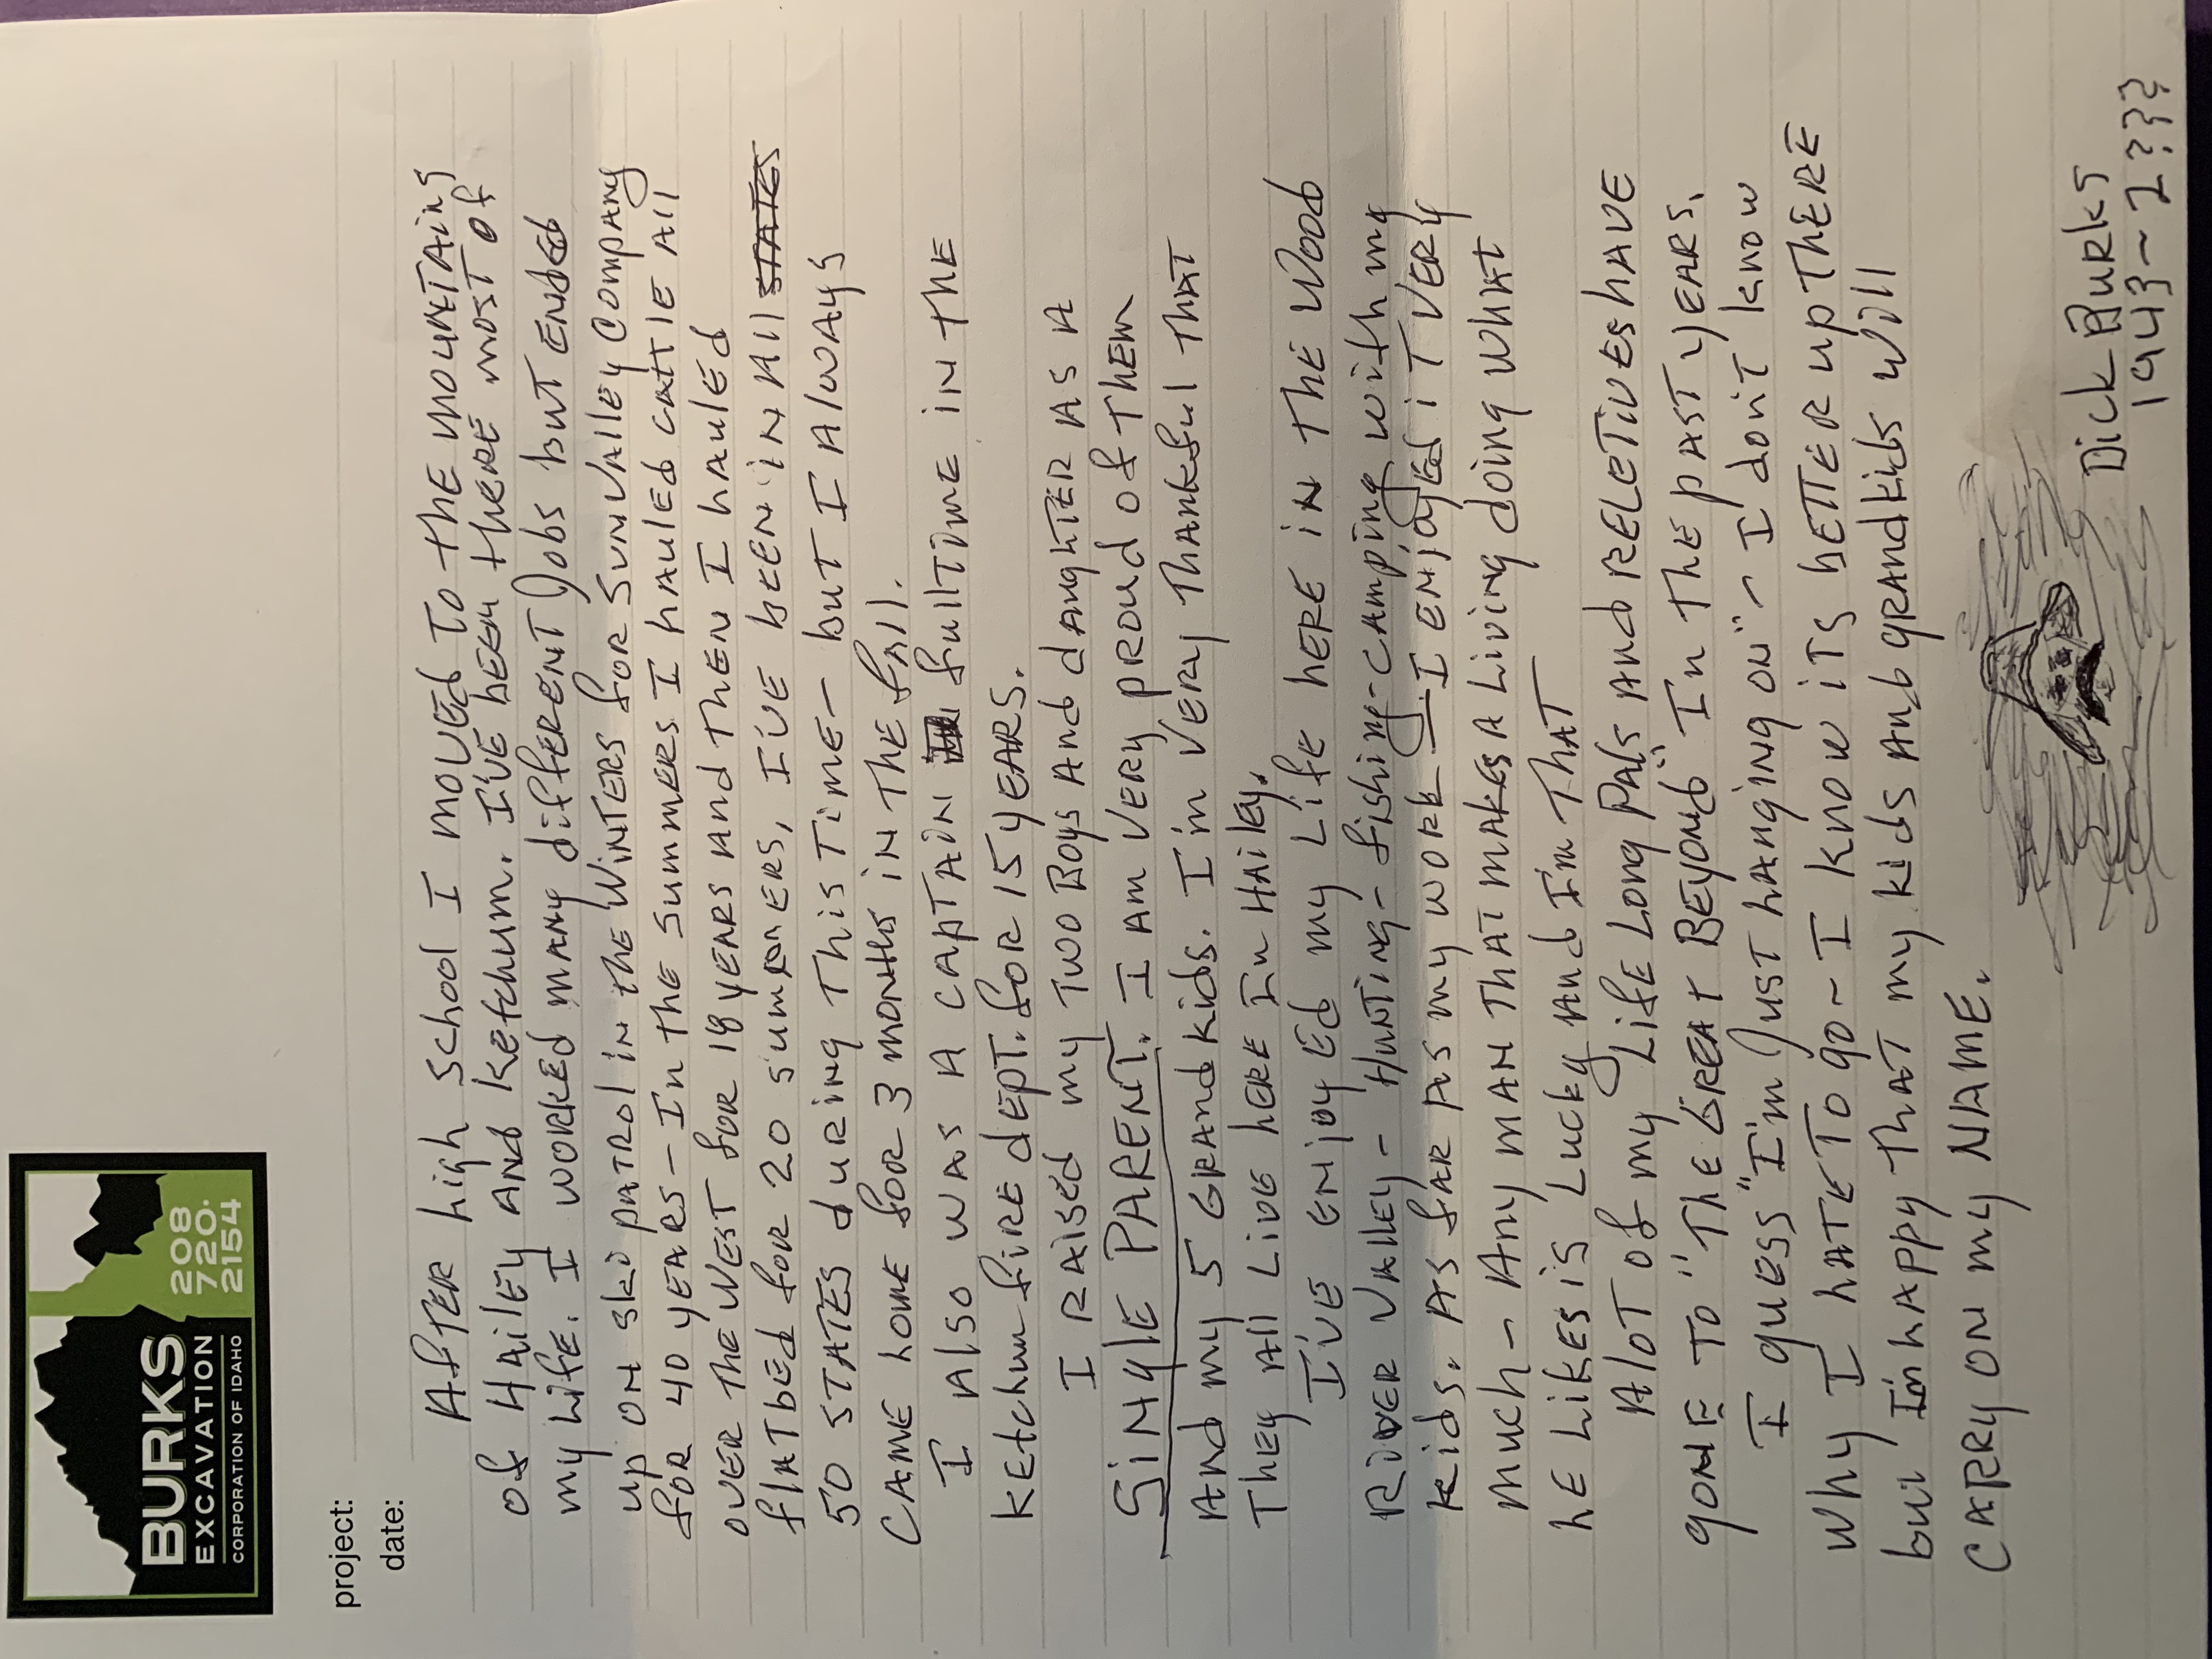 BURKS
EXCAVATION
CORPORATION OF IDAHO
208
720-
2154
project:
date:
After high school I moved to the mountains
of Hailey and Ketchum. I've been there most of
my life. I worked many different Jobs but ended
up on ski patrol in the Winters for Sun Valley Company
for 40 years - In the summers I hauled cattle all
over the West for 18 years and then I hauled
flatbed for 20 summers, I've been in all STATES
50 states during this time - but I always
came home for 3 months in the fall.
I also was a captain fulltime in the
Ketchum fire dept. for 15 years.
I raised my two Boys and daughter as a
Single Parent. I am very proud of them
and my 5 grandkids. I'm very thankful that
They all live here In Hailey.
I've enjoyed my life here in the Wood
River Valley - Hunting - fishing - camping with my
kids. As far as my work - I enjoyed it very
much - Any man that makes a Living doing what
he likes is Lucky and I'm that
Alot of my Life Long Pals and reletives have
gone to "The Great Beyond" In the past years.
I guess "I'm Just hanging on" - I don't know
why I hate to go - I know its better up there
but I'm happy that my kids and grandkids will
carry on my name.
Dick Burks
1943 ~ 2???